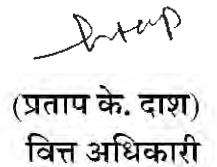 (प्रताप के. दाश)
वित्त अधिकारी